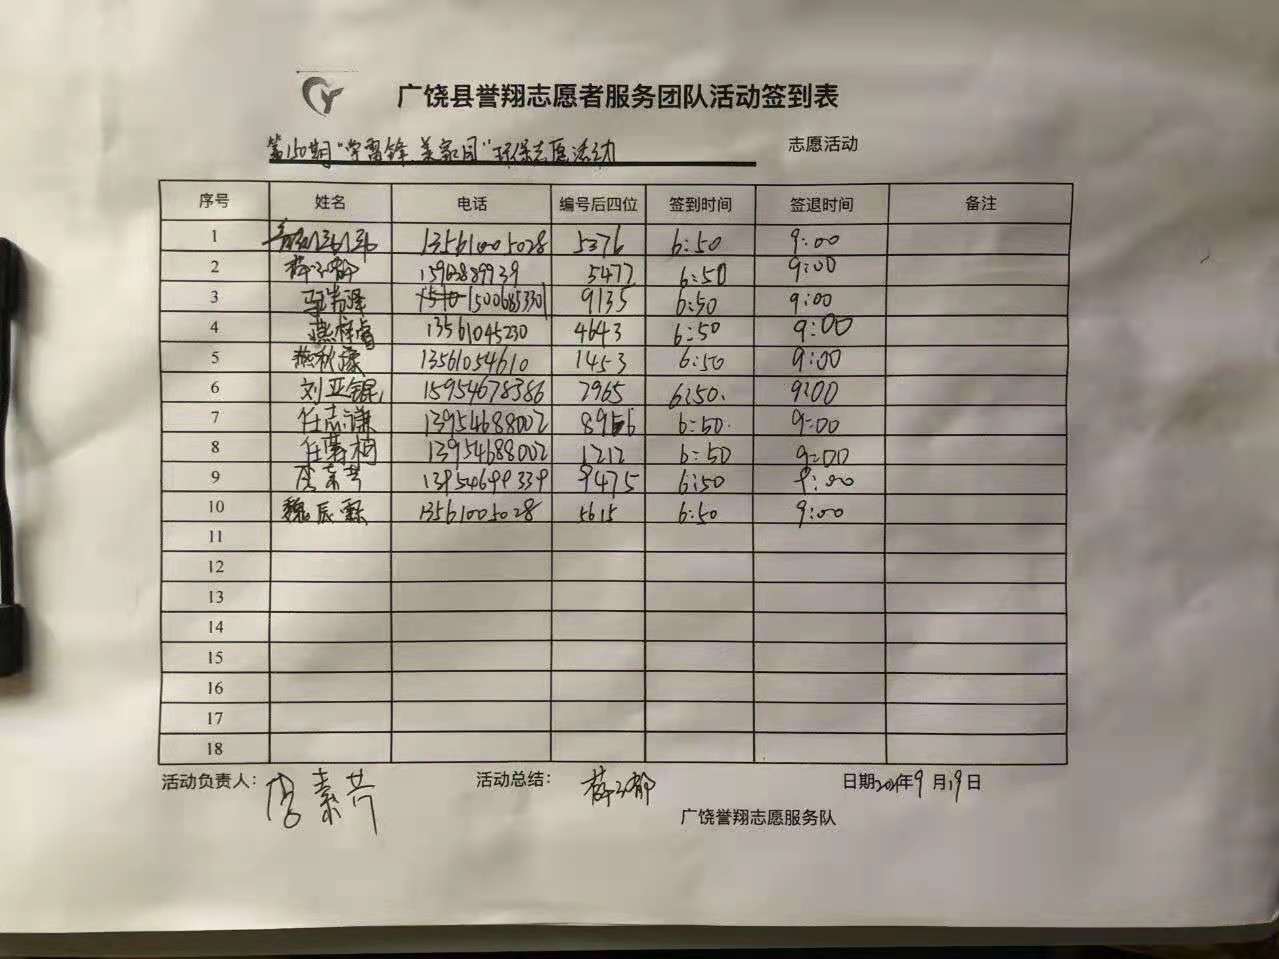 广饶县誉翔志愿者服务团队活动签到表
第150期"学雷锋 美家园"环保志愿活动 志愿活动
序号 姓名 电话 编号后四位 签到时间 签退时间 备注
1 13561005028 5376 6:50 9:00
2 5477 6:50 9:00
3 15006853301 9135 6:50 9:00
4 燕祥睿 13561045230 4643 6:50 9:00
5 燕秋 13561054610 1453 6:50 9:00
6 刘亚锟 15954678386 7965 6:50 9:00
7 任志谦 13954688002 8956 6:50 9:00
8 任 13954688002 1212 6:50 9:00
9 李素芹 13954699339 9475 6:50 9:00
10 魏辰霖 13561005028 5615 6:50 9:00
11
12
13
14
15
16
17
18
活动负责人: 李素芹 活动总结: 日期2021年9月19日
广饶誉翔志愿服务队